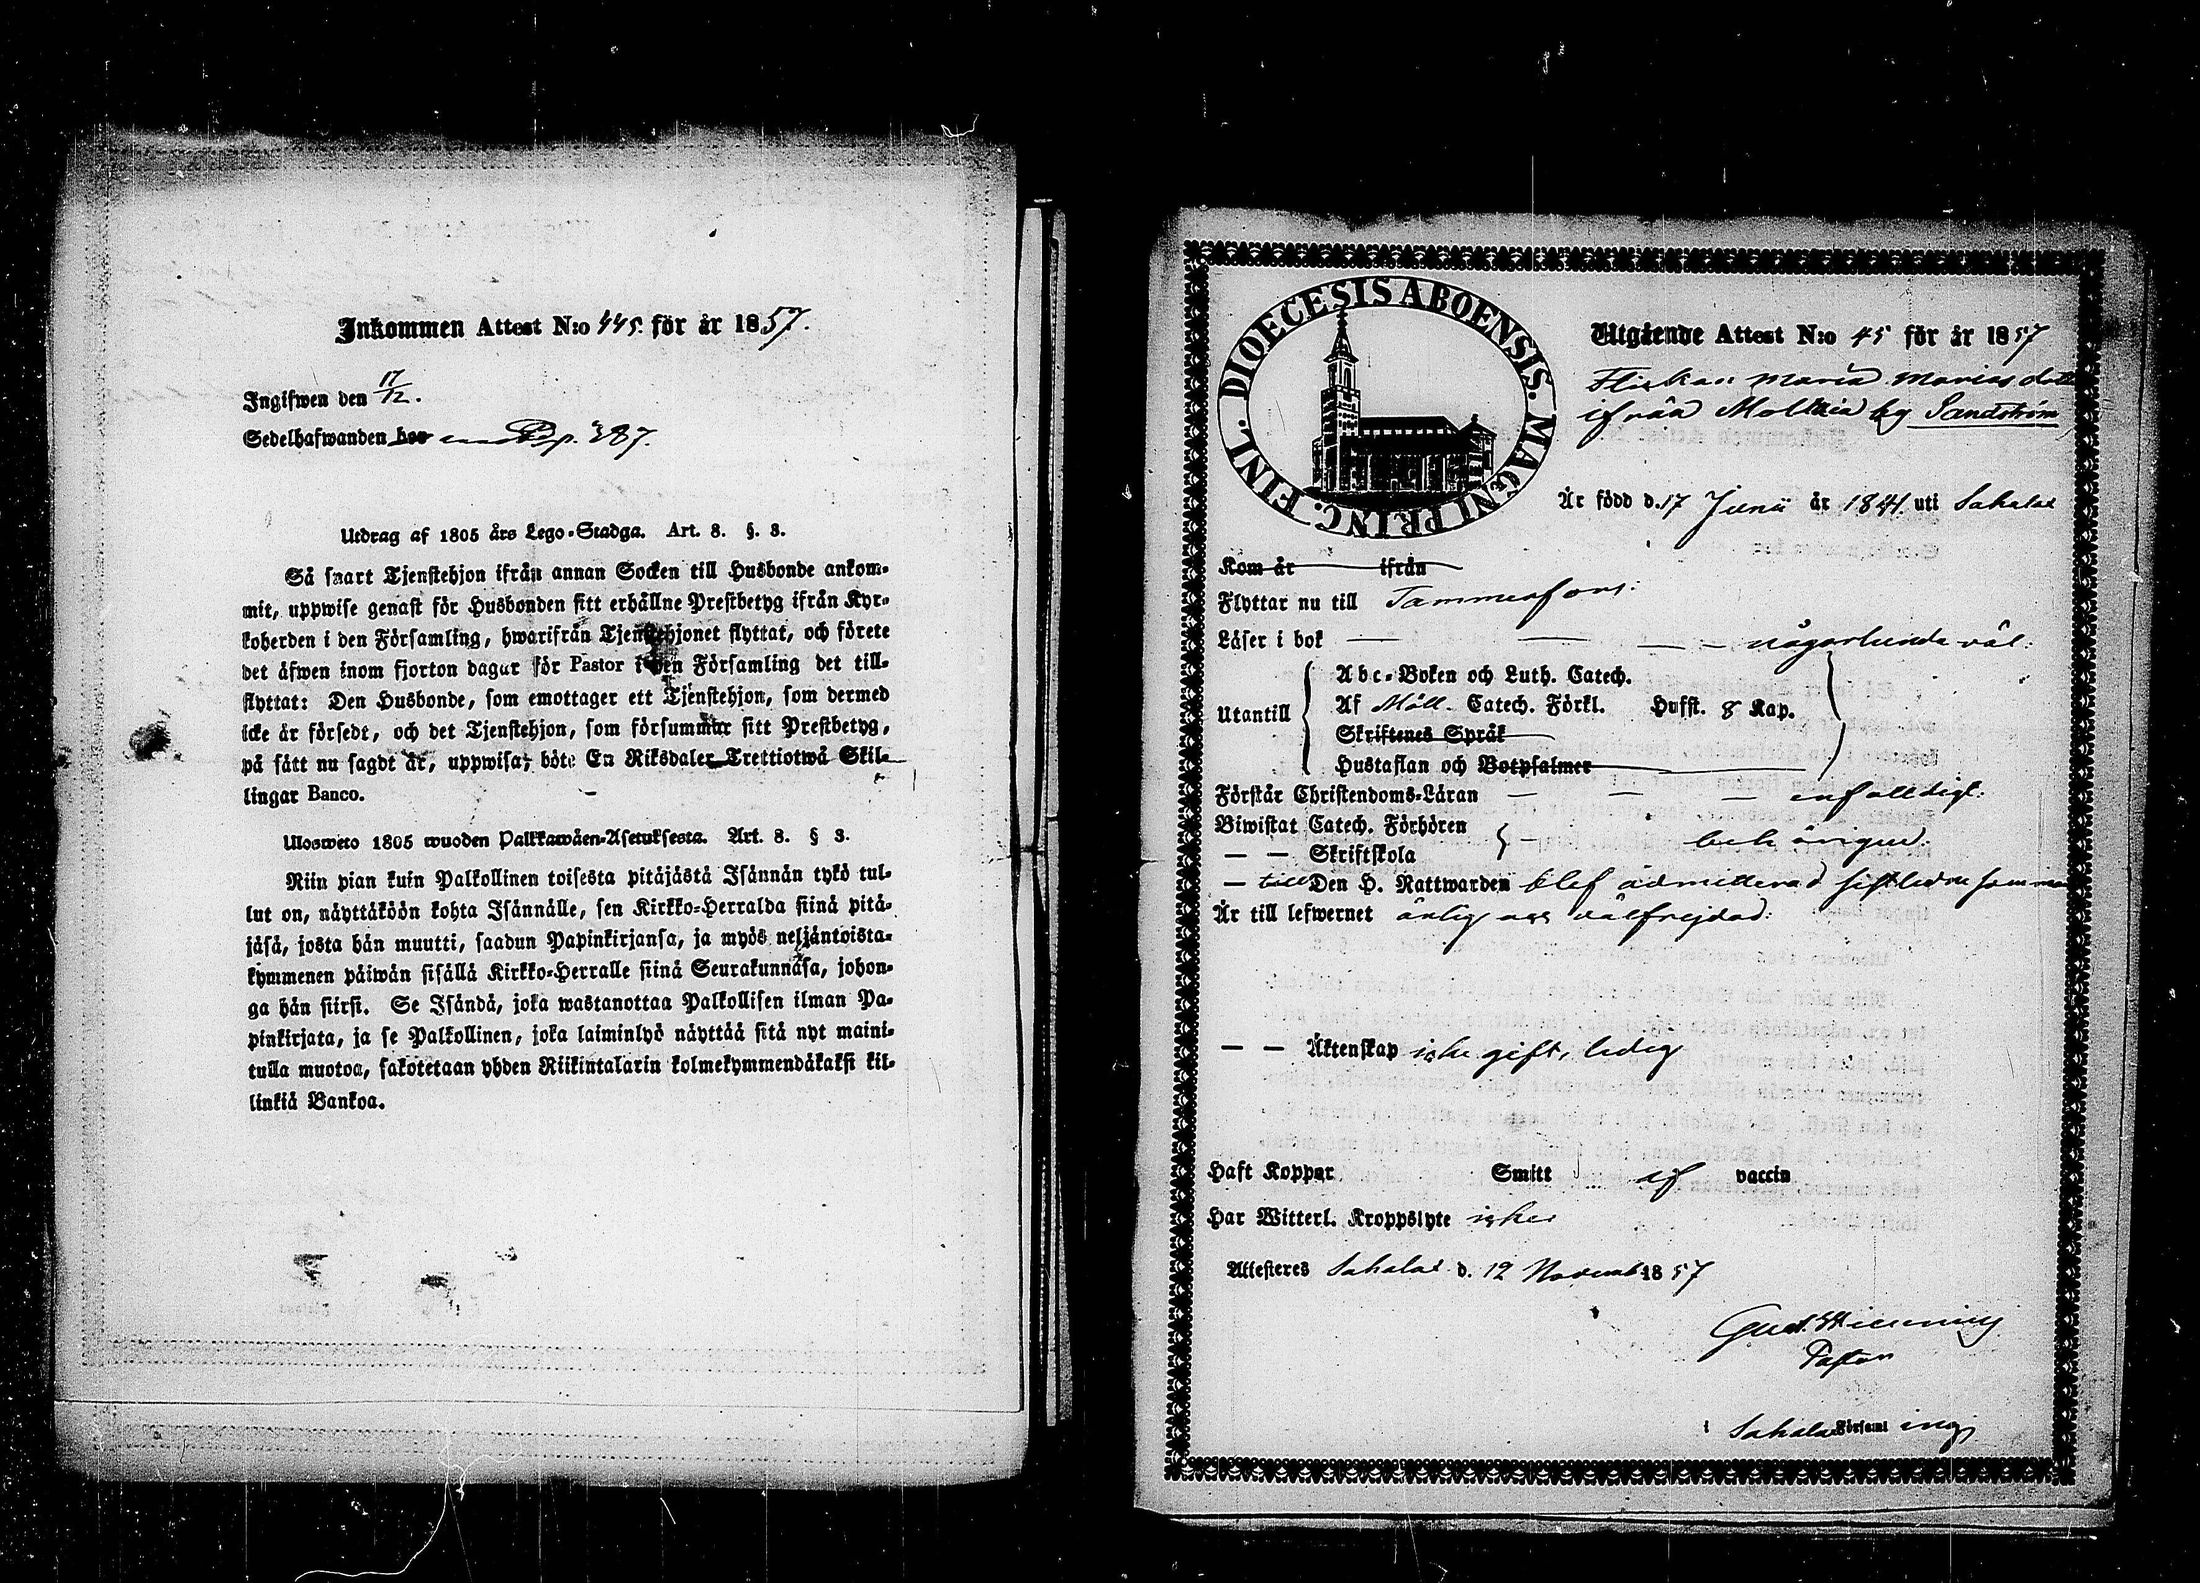 Inkommen Attest N:o 445. för år 1857.
Ingifwen den 17/12.
Sedelhafwanden bor Pag. 387.
Utdrag af 1805 års Lego-Stadga. Art. 8. §. 3.
Så snart Tjenstehjon ifrån annan Socken till Husbonde ankom-
mit, uppwise genast för Husbonden sitt erhållne Prestbetyg ifrån Kyr-
koherden i den Församling, hwarifrån Tjenstehjonet flyttat, och förete
det äfwen inom fjorton dagar för Pastor i den Församling det till-
flyttat: Den Husbonde, som emottager ett Tjenstehjon, som dermed
icke är försedt, och det Tjenstehjon, som försummar sitt Prestbetyg,
på sätt nu sagdt är, uppwisa, böte En Riksdaler Trettiotwå Skil-
lingar Banco.
Ulosweto 1805 wuoden Palkkawäen-Asetuksesta. Art. 8. § 3.
Niin pian kuin Palkollinen toisesta pitäjästä Isännän tykö tul-
lut on, näyttäköön kohta Isännälle, sen Kirkko-Herralda siinä pitä-
jäsä, josta hän muutti, saadun Papinkirjansa, ja myös neljäntoista-
kymmenen päiwän sisällä Kirkko-Herralle siinä Seurakunnasa, johon-
ga hän siirsi. Se Isändä, joka wastanottaa Palkollisen ilman Pa-
pinkirjata, ja se Palkollinen, joka laiminlyö näyttää sitä nyt maini-
tulla muotoa, sakotetaan yhden Riikintalarin kolmekymmendäkaksi kil-
linkiä Bankoa.
DIOECESIS ABOENSIS. MAGNI PRINC. FINL.
Utgående Attest N:o 45 för år 1857
Flickan Maria Mariasdotter
ifrån Moltsia by Sandström
Är född d. 17 Junii år 1841. uti Sahalax
Kom år ifrån
Flyttar nu till Tammerfors.
Läser i bok — — — — någorlunda väl.
Utantill
Abc-Boken och Luth. Catech.
Af Möll. Catech. Förkl. Hufst. 8 Kap.
Skriftenes Språk
Hustaflan och Botpsalmer
Förstår Christendoms-Läran — — — enfalldigt.
Biwistat Catech. Förhören
— — Skriftskola — behörigen.
— till Den H. Nattwarden blef admitterad sistledne sommar
Är till lefwernet ärlig och välfrejdad.
— — Äktenskap icke gift, ledig
Haft Koppor Smitt af vaccin
Har Witterl. Kroppslyte icke
Attesteres Sahalax d. 12 November 1857
Pastor
i Sahalax Församling